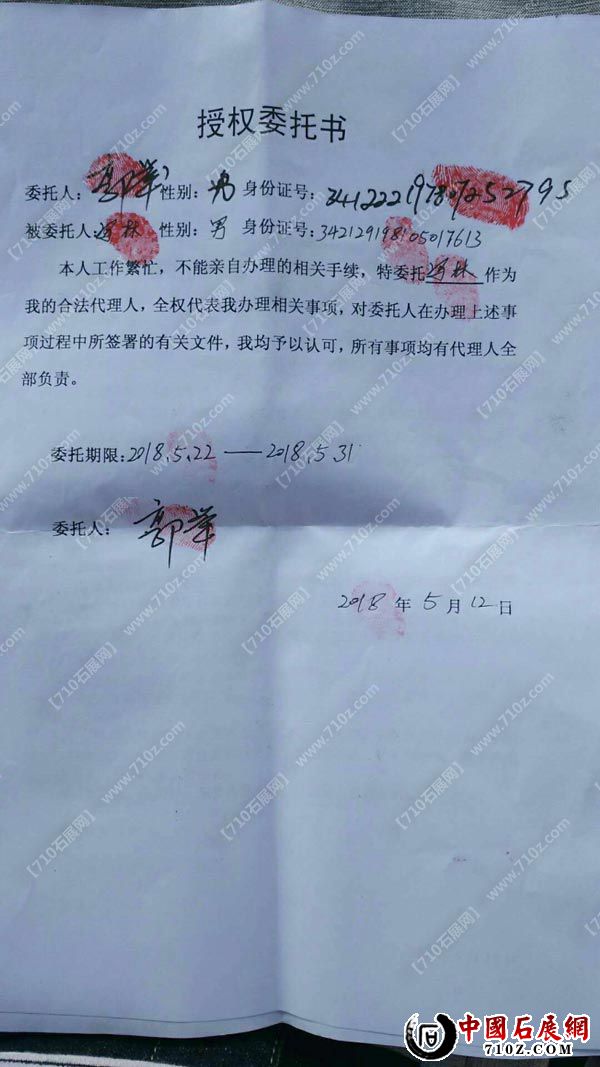 授权委托书
委托人: 郭举 性别: 男 身份证号: 341222197807252795
被委托人: 林 性别: 男 身份证号: 342129198105017613
本人工作繁忙，不能亲自办理的相关手续，特委托 林 作为
我的合法代理人，全权代表我办理相关事项，对委托人在办理上述事
项过程中所签署的有关文件，我均予以认可，所有事项均有代理人全
部负责。
委托期限: 2018.5.22——2018.5.31
委托人: 郭举
2018 年 5 月 12 日
【710石展网】 www.710z.com
中國石展網
710Z.COM